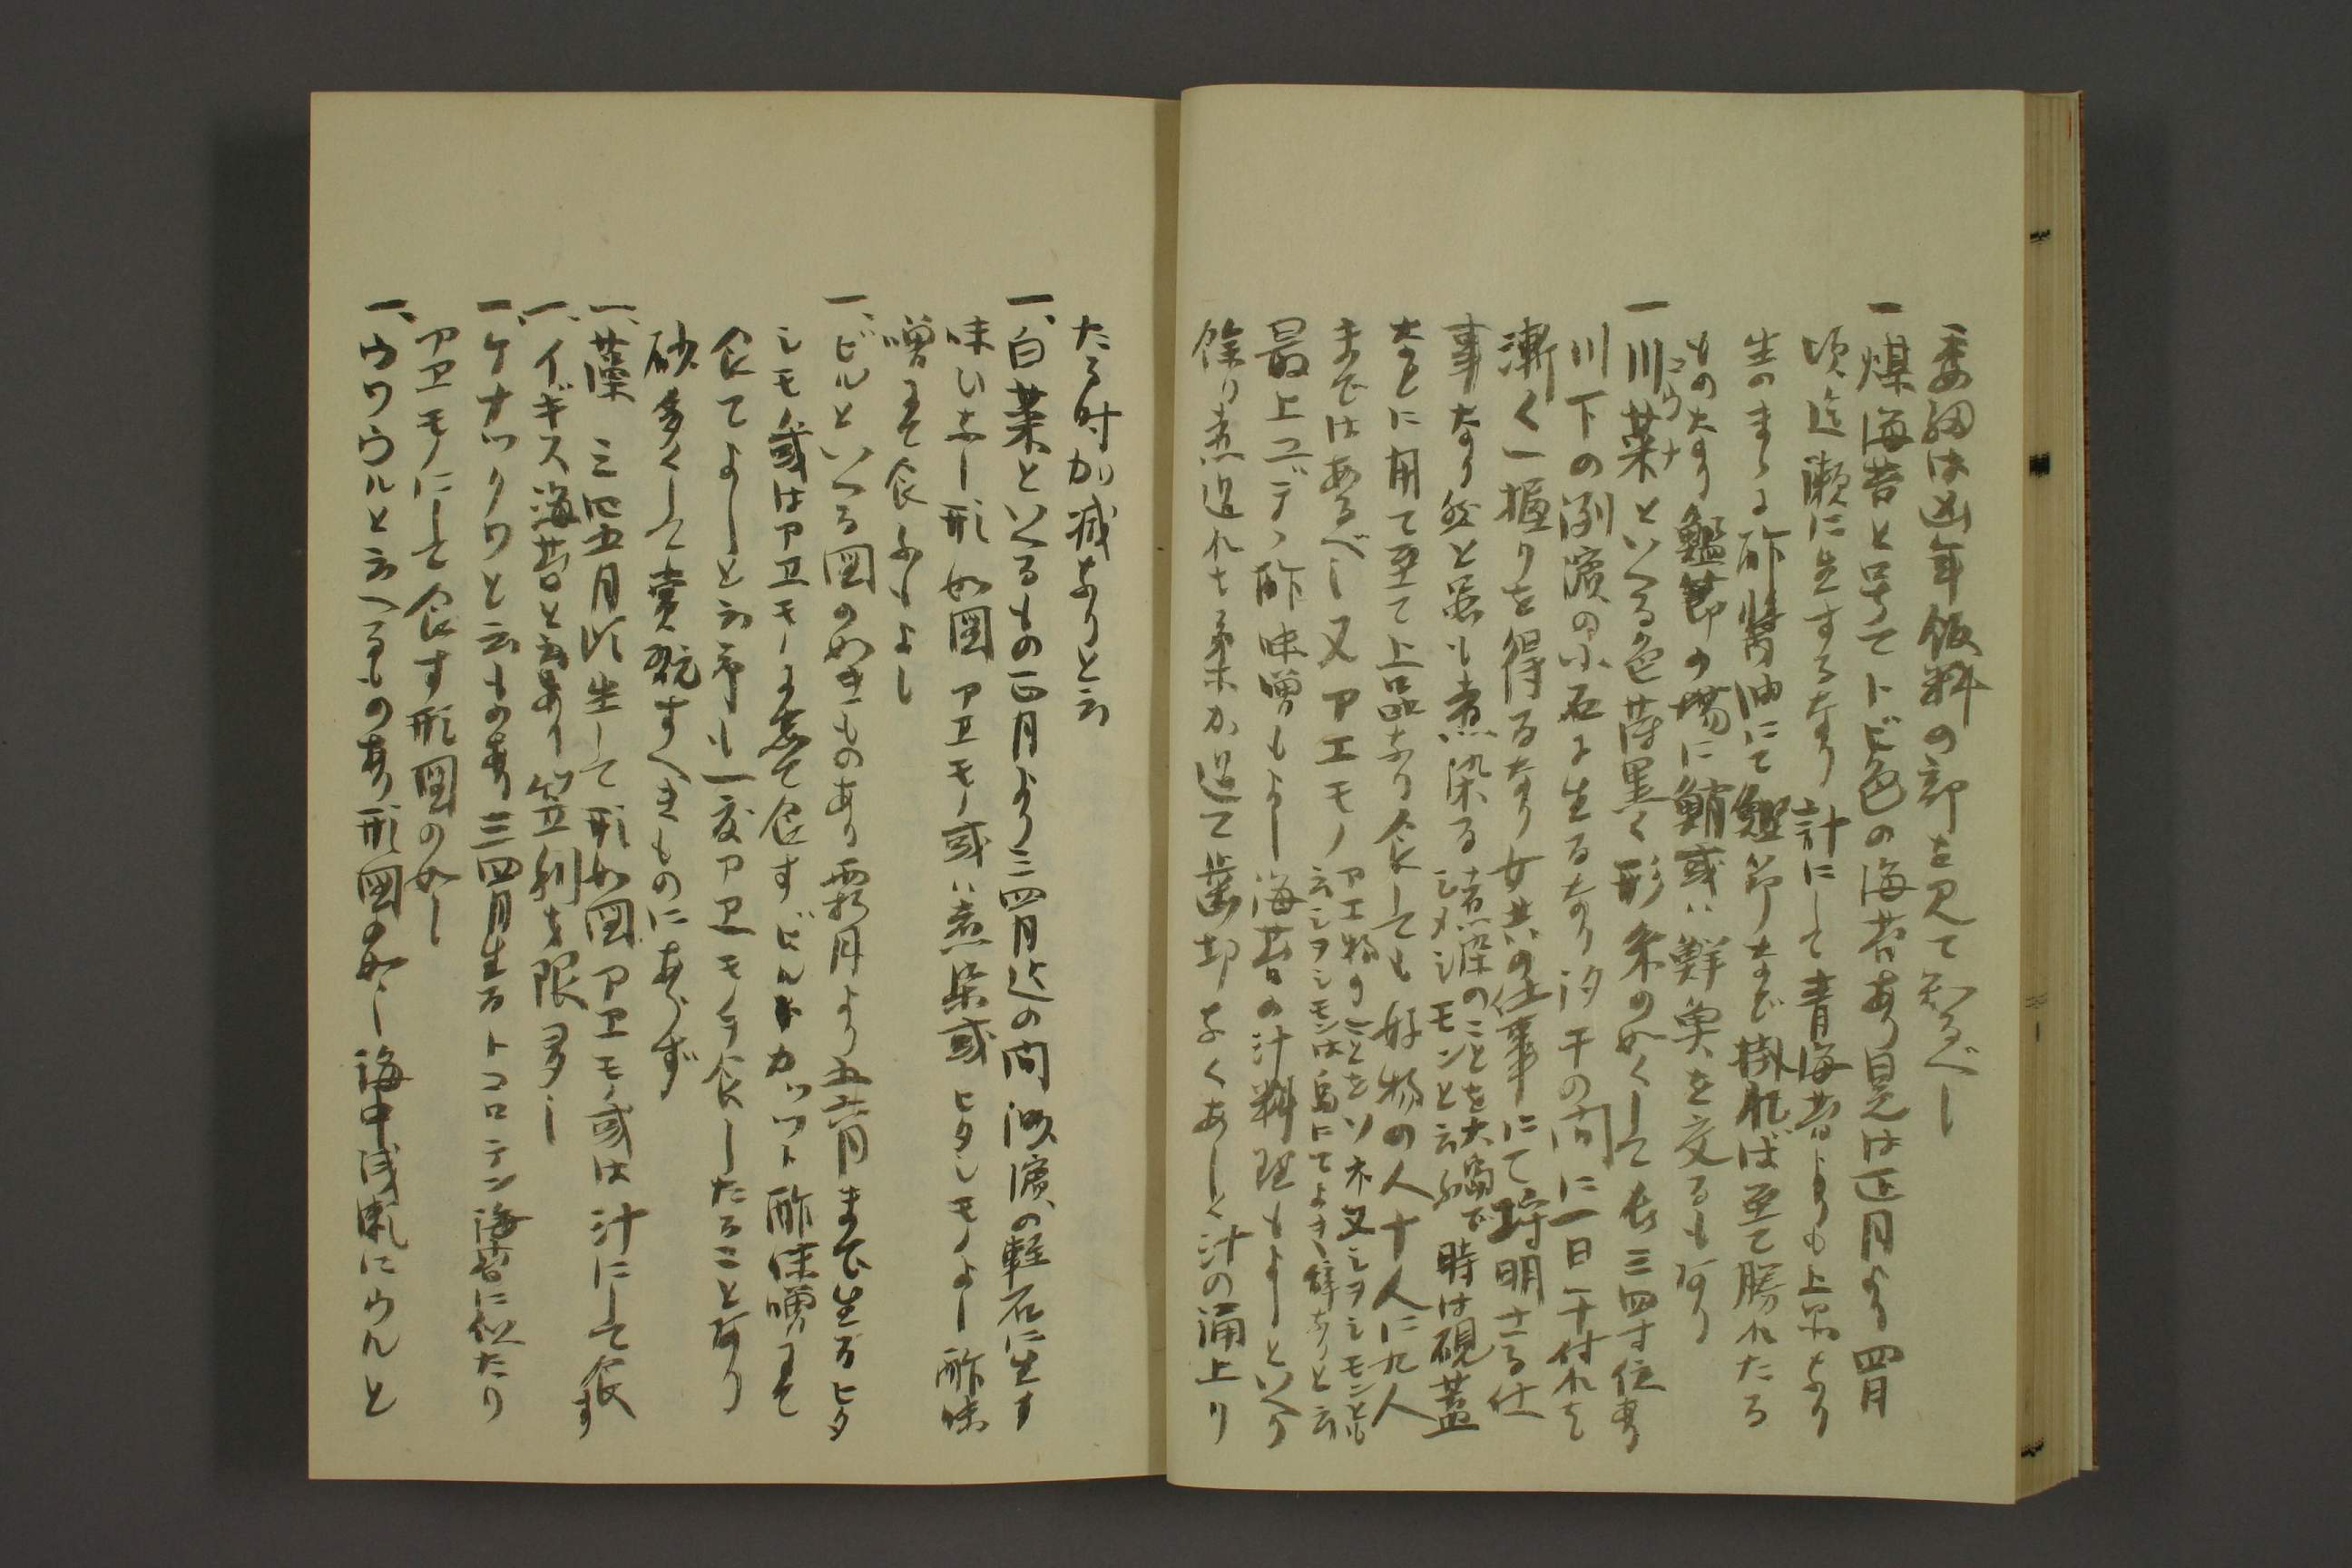 委細は凶年飯料の部を見て知るべし
一煤海苔と号てトビ色の海苔あり是は正月より四月
頃迄瀬に生するなり計にして青海苔よりも上品なり
生のまゝに酢醤油にて鰹節など掛れば至て勝れたる
ものなり鰹節の場に鯖或は鮮魚を交るもあり
一川菜といへる色薄黒く形糸の如くして長三四寸位有
コウナ
川下の渕濱の小石に生るなり汐干の間に一日干付れは
漸く一握りを得るなり女共の仕事にて埒明さる仕
事なり然と雖も煮染る
煮染のことを大島で
シメシモンと云ふ
時は硯蓋
なとに用て至て上品なり食しても好物の人十人に九人
まではあるべし又アエモノ
アエ物のことをソネ又シヲシモンとも
云シヲシモンは島にてよき辞なりと云
最上ユデヽ酢味噌もよし海苔の汁料理もよしといへり
餘り煮過れは柔か過て歯切なくあしく汁の涌上り
たる時加減なりと云
一、白菜といへるもの正月より三四月迄の間海濱の軽石に生す
味いよし形如図アヱモノ或は煮染或ヒタシモノよし酢味
噌にて食ふもよし
一、ビルといへる図の如きものあり霜月より五六月まで生るヒタ
シモノ或はアヱモノに煮て食すビルトカツヲト酢味噌にて
食てよしと云予も一度アヱモノヲ食したることあり
砂多くして賞翫すべきものにあらず
一、藻　三四五月頃生して形如図アヱモノ或は汁にして食す
一、イギス海苔と云あり笠利を限多し
一、ケナツクワと云もの有三四月生るトコロテン海苔に似たり
アヱモノにして食す形図の如し
一、ウワウルと云へるもの有形図の如し海中浅瀬にウルと